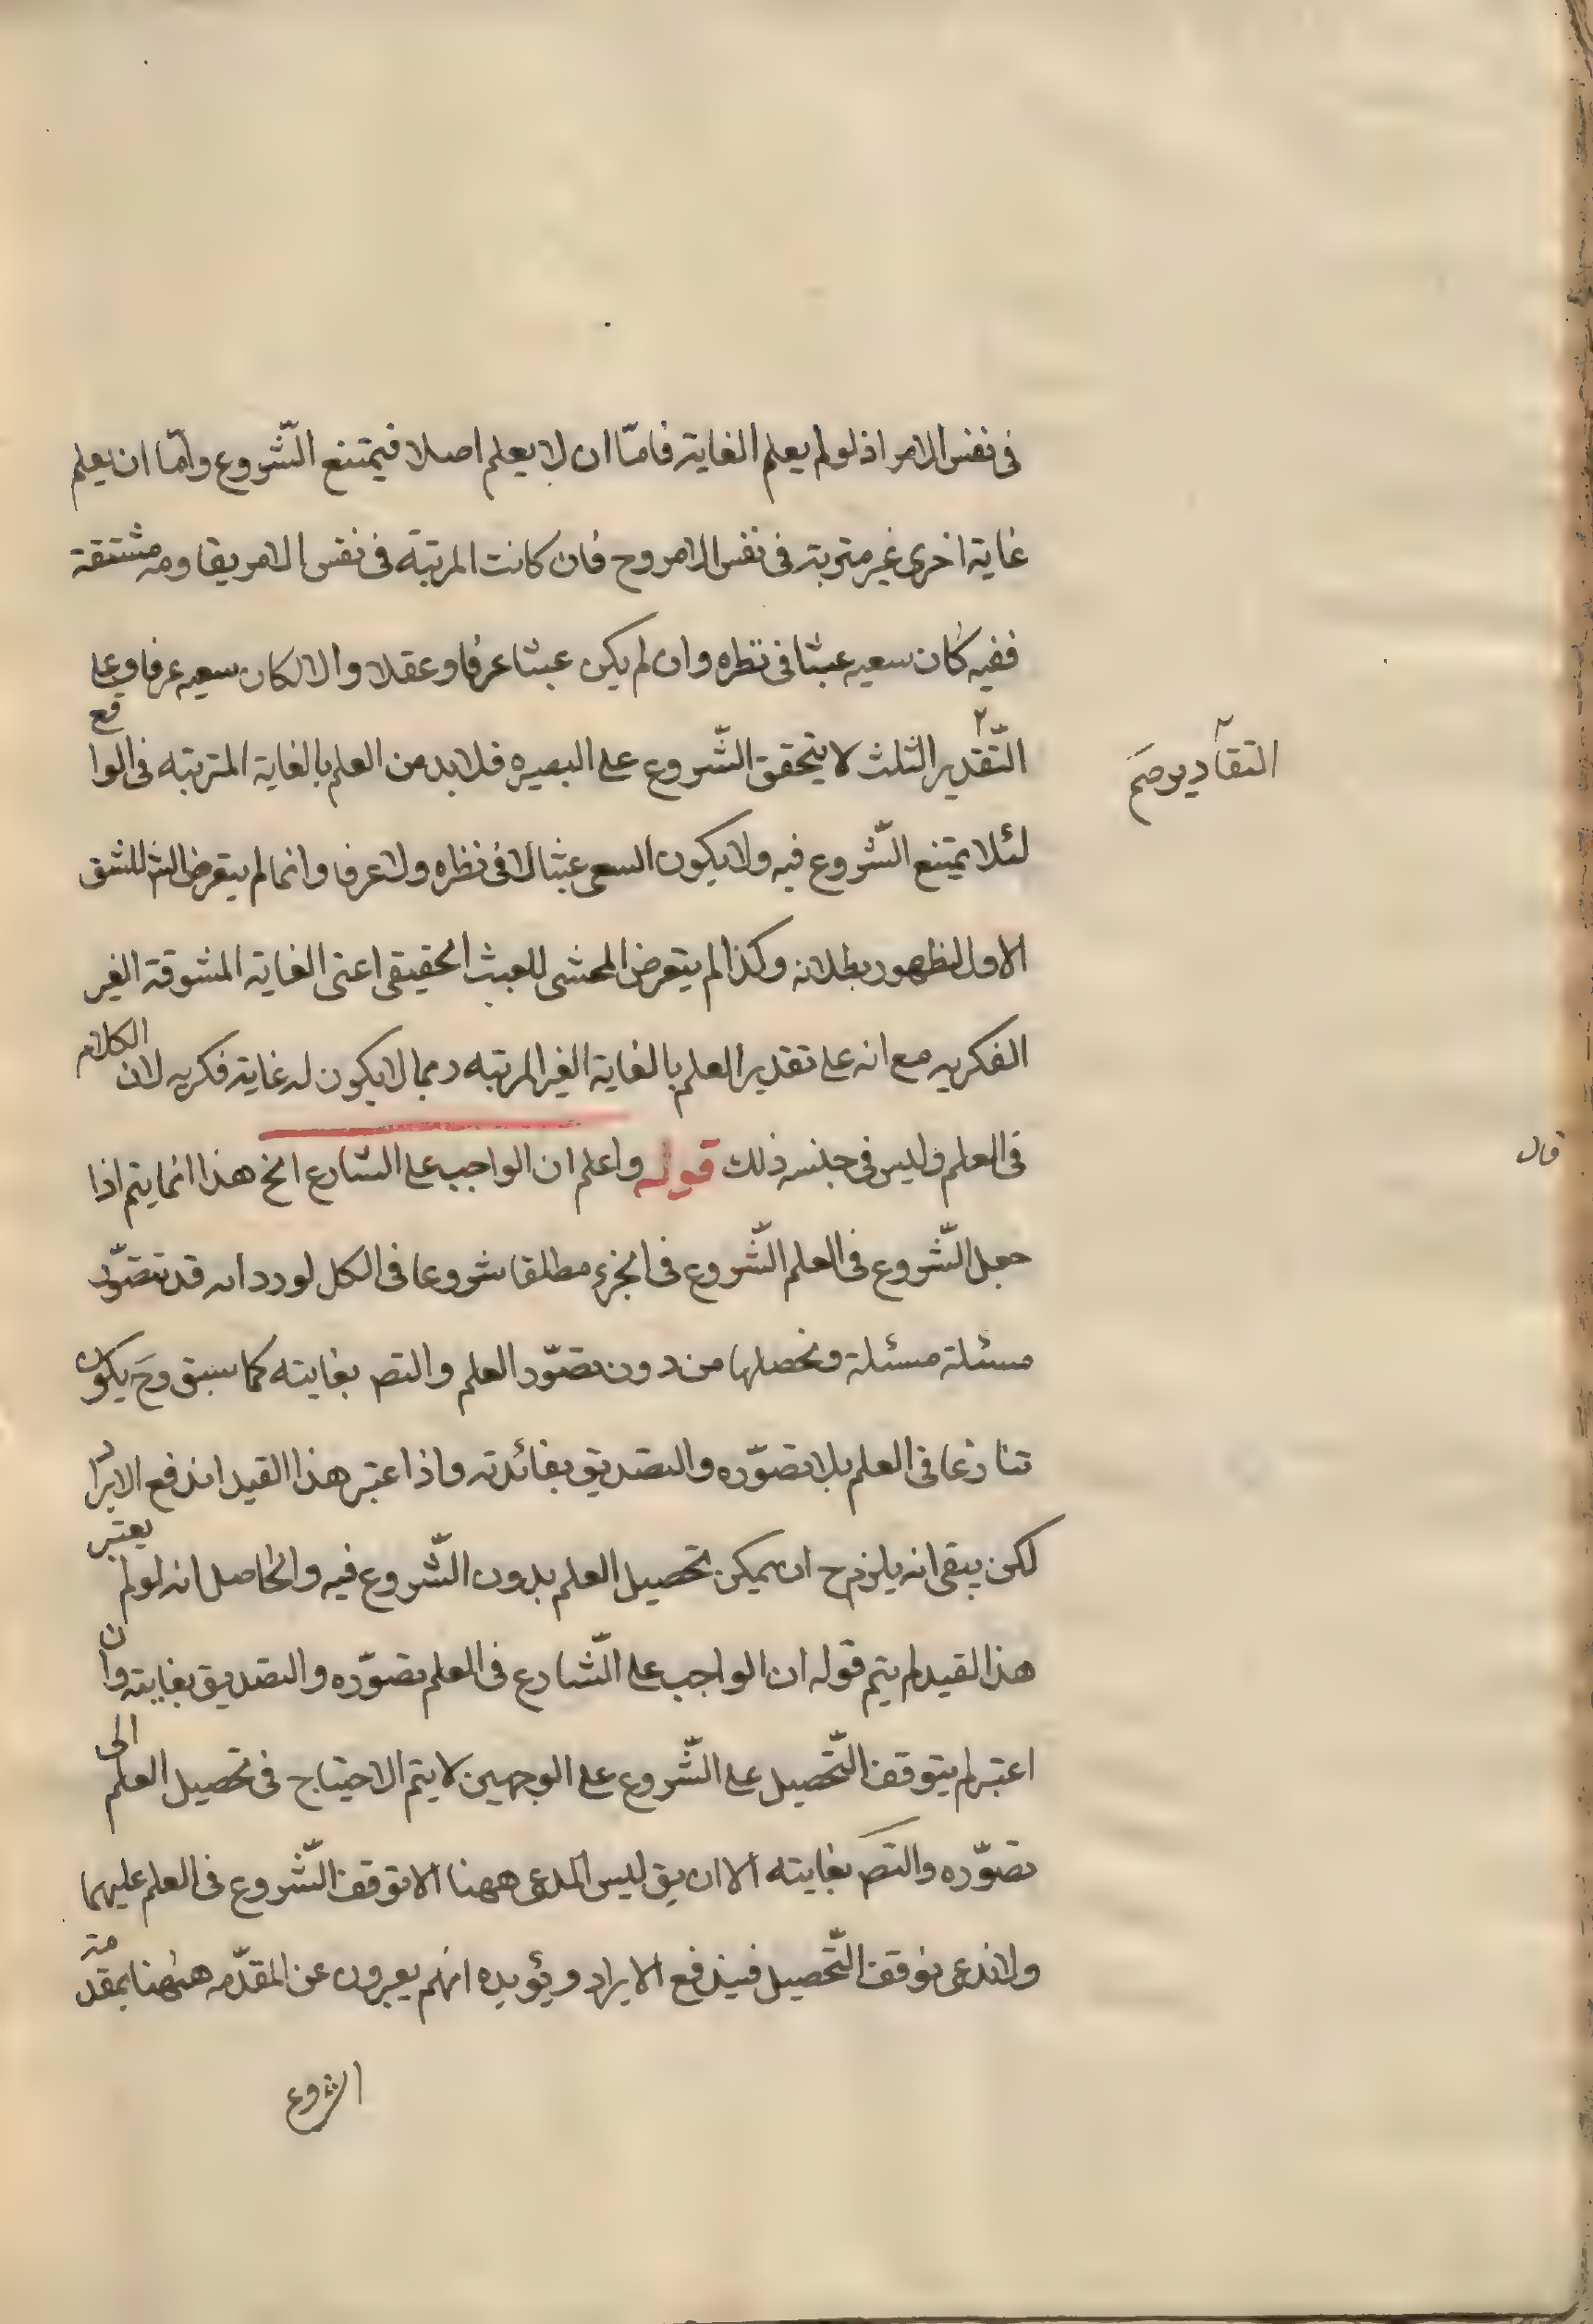 فى نفس الامر اذ لو لم يعلم الغاية فامّا ان لا يعلم اصلا فيمتنع الشّروع وامّا ان يعلم
غاية اخرى غير مترتبة فى نفس الامر وح فان كانت المرتبة فى نفس الامر يقاومه مشتقة
ففيه كان سعيه عبثا فى نظره وان لم يكن عبثا عرفا وعقلا والا لكان سعيه عرفا وعلى
التّقدير الثلث لا يتحقق الشّروع على البصيره فلا بد من العلم بالغاية المترتبه فى الواقع
التقادير صح
لئلا يمتنع الشّروع فيه ولا يكون السعى عبثا لا فى نظره ولا عرفا وانما لم يتعرض الش للشق
الاول لظهور بطلانه وكذا لم يتعرض المحشى للعبث الحقيقى اعنى الغاية المشوقة الغير
الفكريه مع انه على تقدير العلم بالغاية الغير المرتبه مما لا يكون له غاية فكريه لان الكلام
فى العلم وليس فى جنسه ذلك قوله واعلم ان الواجب على الشارع الخ هذا انما يتم اذا
قال
جعل الشّروع فى العلم الشّروع فى الجزء مطلقا شروعا فى الكل لورد انه قد نتصوّر
مسئلة مسئلة ونحصلها من دون تصوّر العلم والتص بغايته كما سبق وح يكون
شارعا فى العلم بلا تصوّره والتصديق بفائدته واذا اعتبر هذا القيد اندفع الايراد
لكن يبقى انه يلزم ح ان يمكن تحصيل العلم بدون الشّروع فيه والحاصل انه لو لم يعتبر
هذا القيد لم يتم قوله ان الواجب على الشّارع فى العلم تصوّره والتصديق بغايته وان
اعتبر لم يتوقف التّحصيل على الشّروع على الوجهين لا يتم الاحتياج فى تحصيل العلم الى
تصوّره والتص بغايته الا ان يق ليس المدعى ههنا الا توقف الشّروع فى العلم عليهما
ولا ندعى توقف التّحصيل فيندفع الايراد ويؤيده انهم يعبرون عن المقدّمه ههنا بمقدمة
الشروع